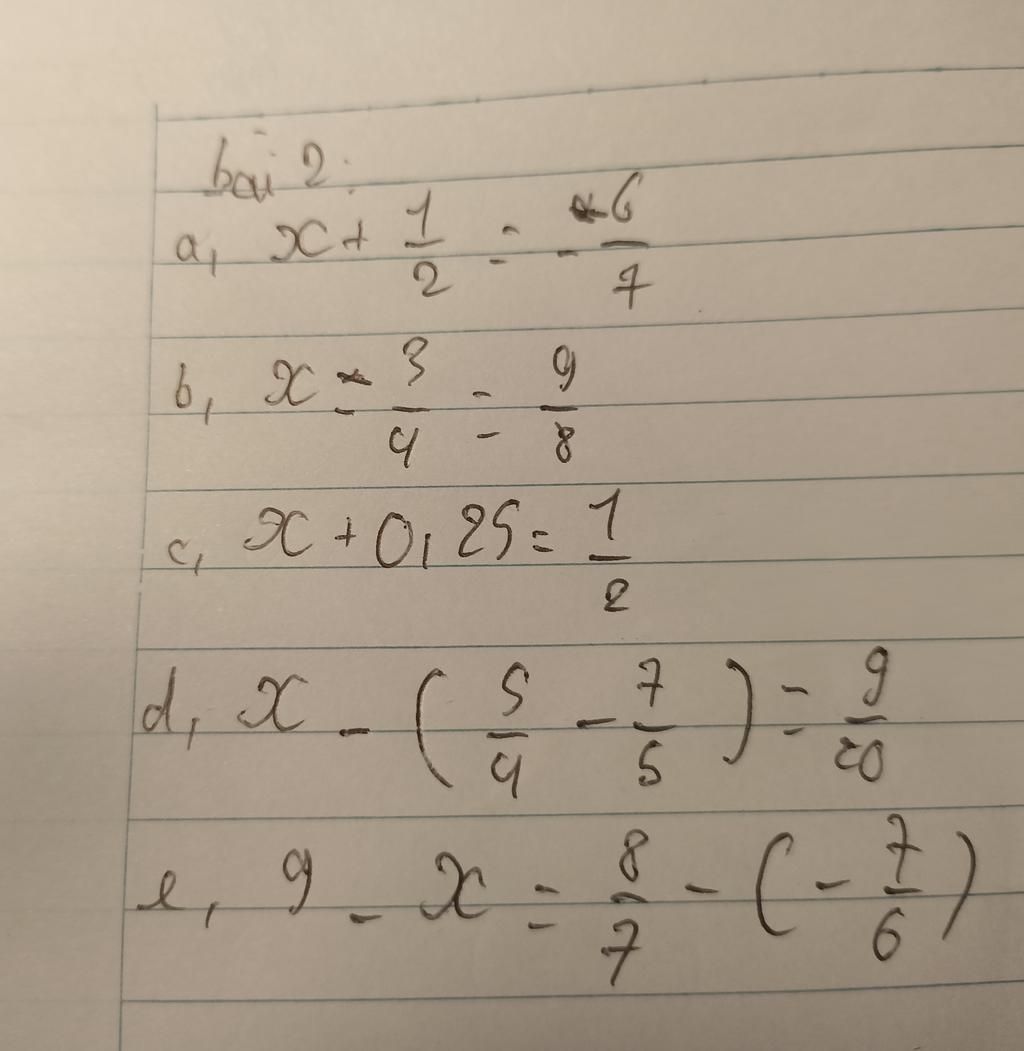 bài 2:
a, x + 1/2 = -6/7
b, x - 3/4 = 9/8
c, x + 0,25 = 1/2
d, x - (5/4 - 7/5) = 9/20
e, 9 - x = 8/7 - (-7/6)